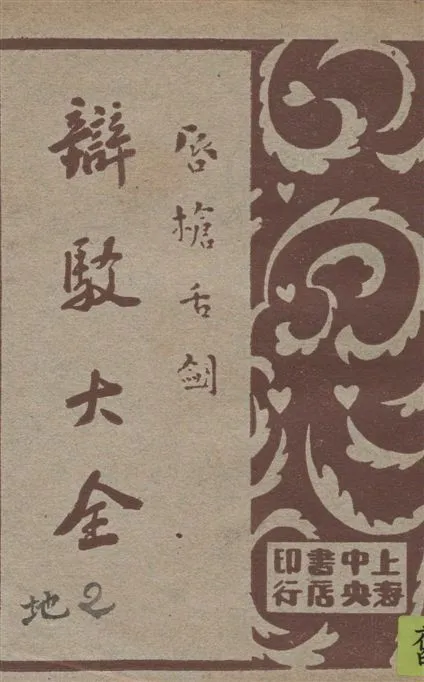 唇槍舌劍
辯駁大全
上海
中央
書店
印行
地2
舊